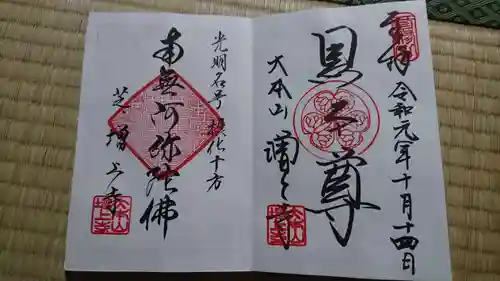 奉拝
令和元年十月十四日
黒本尊
大本山 増上寺
光明名号摂化十方
南無阿弥陀佛
芝 増上寺